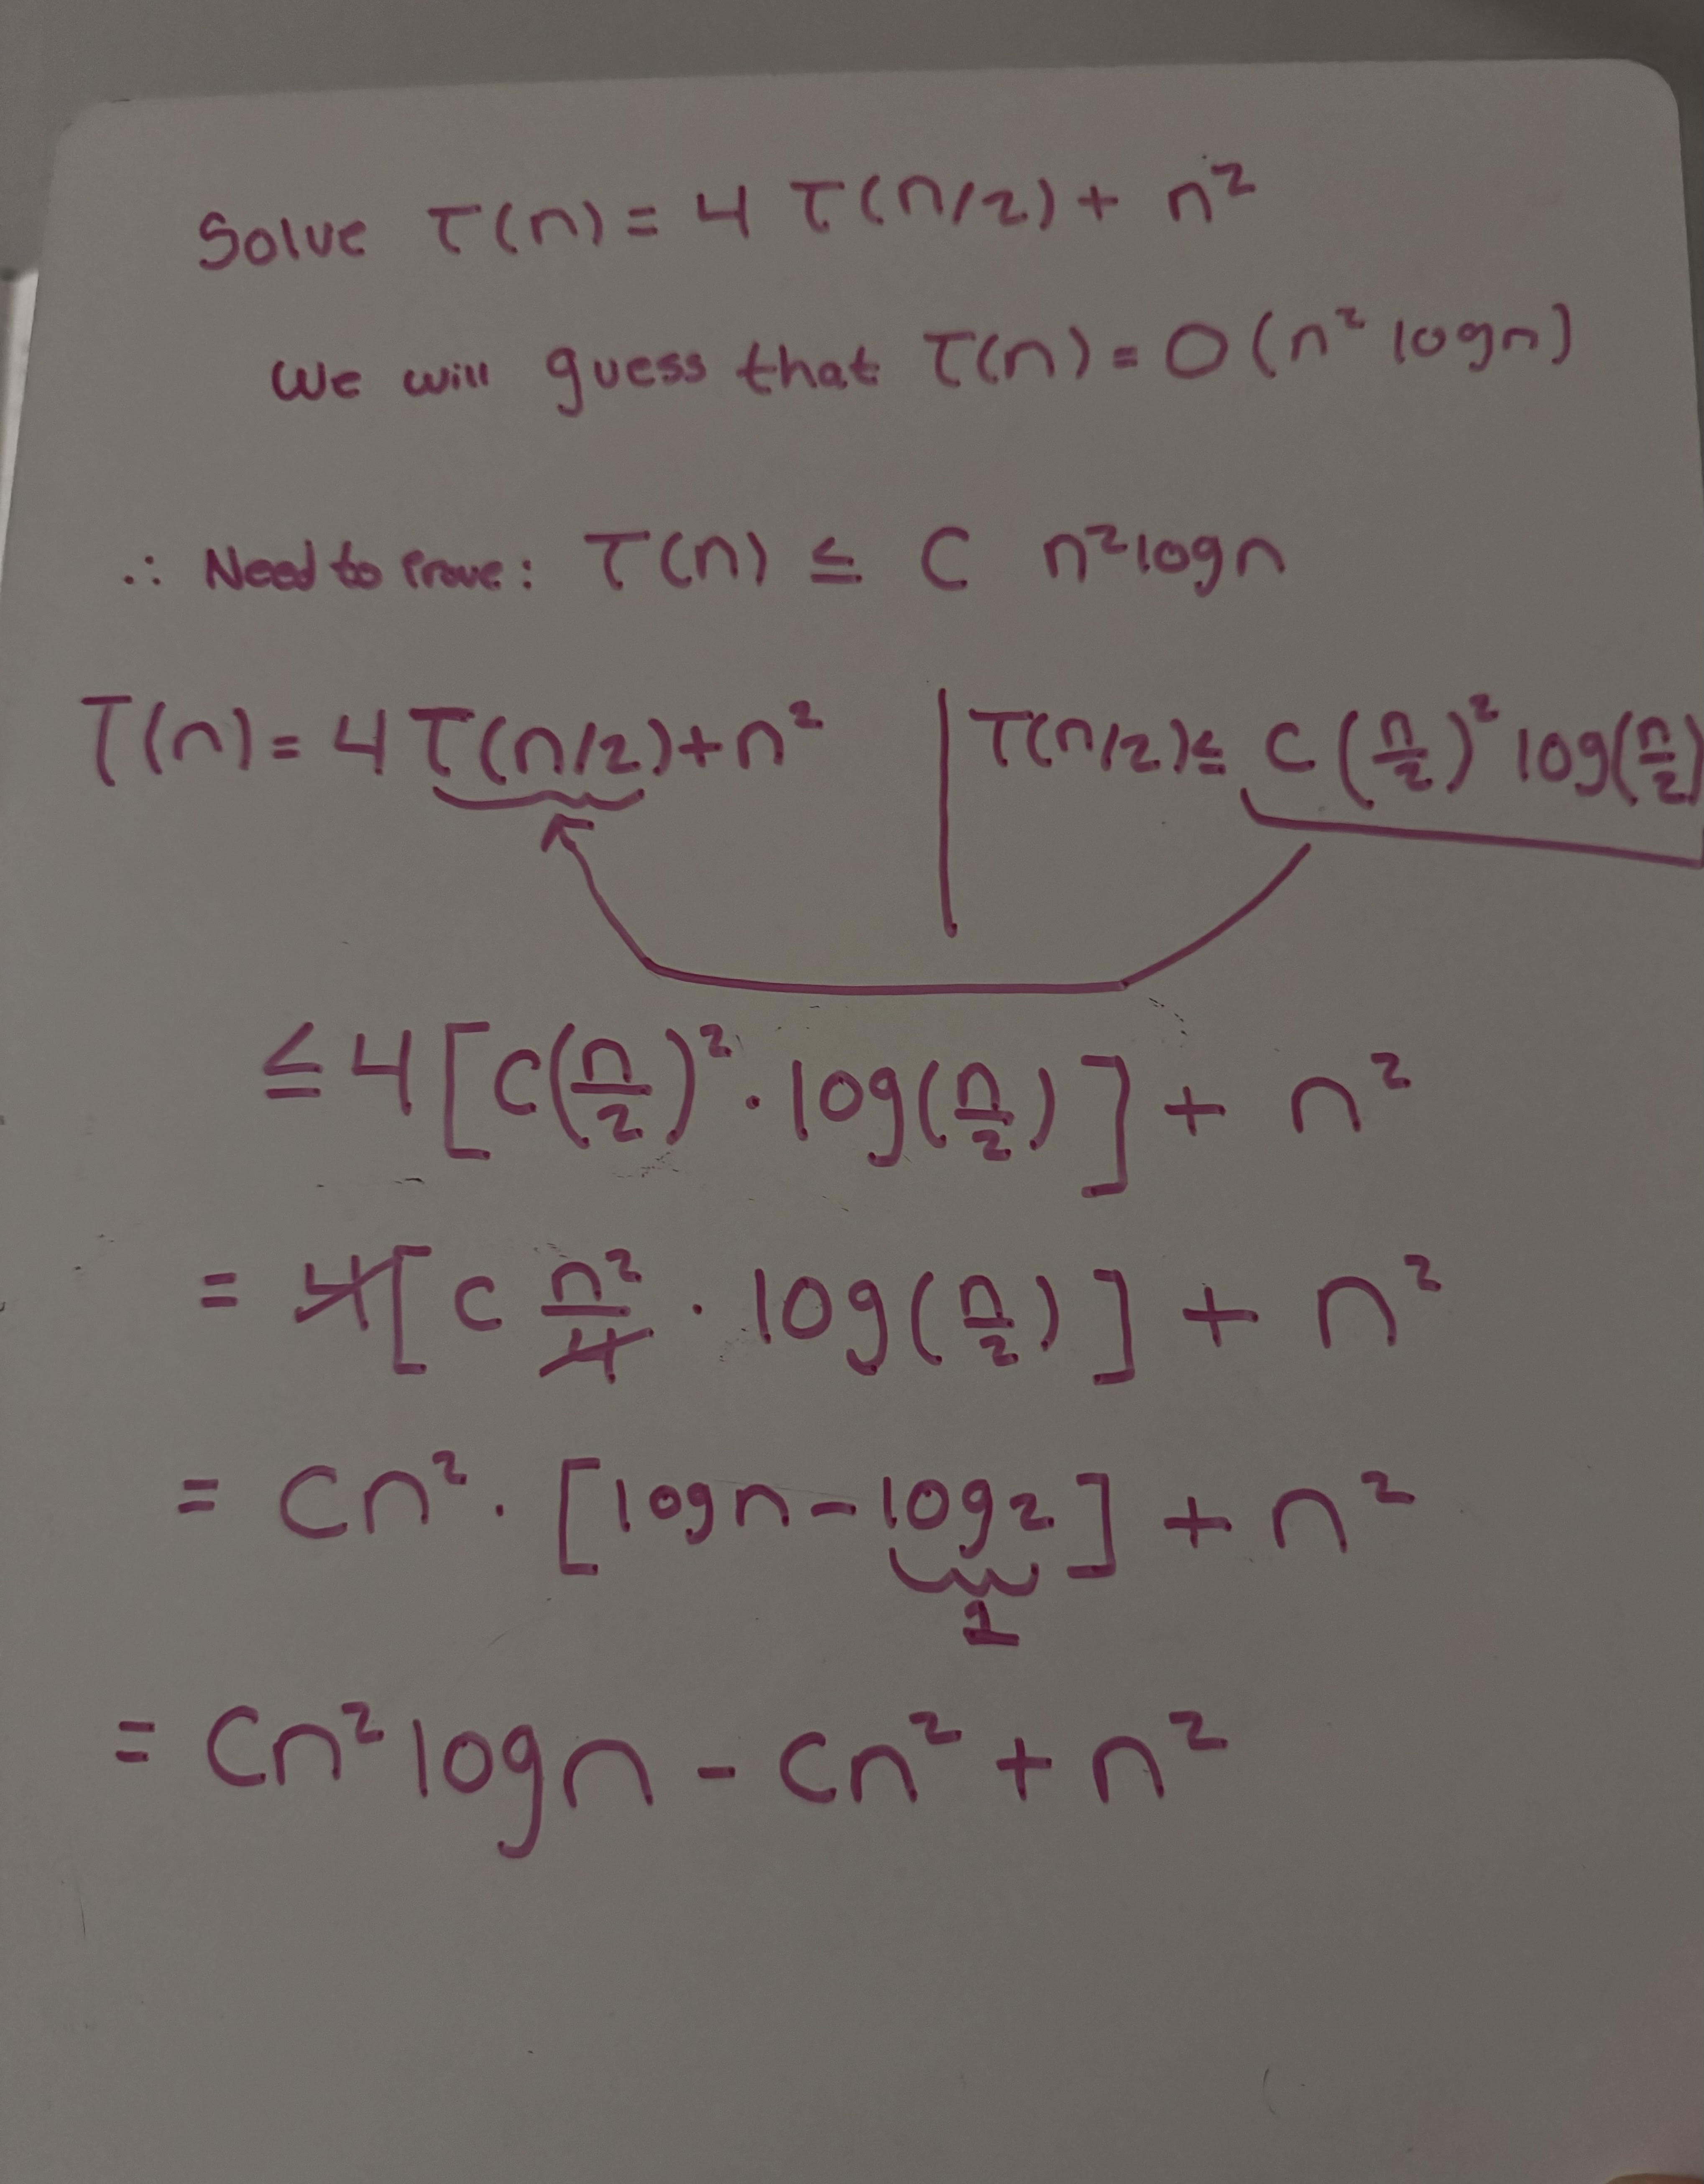 Solve T(n) = 4 T(n/2) + n²
We will guess that T(n) = O(n² logn)
∴ Need to Prove: T(n) ≤ C n²logn
T(n) = 4T(n/2)+n² | T(n/2) ≤ C (n/2)² log(n/2)
≤ 4[C(n/2)² · log(n/2)] + n²
= 4[C n²/4 · log(n/2)] + n²
= Cn² · [logn - log2] + n²
1
= Cn² logn - Cn² + n²